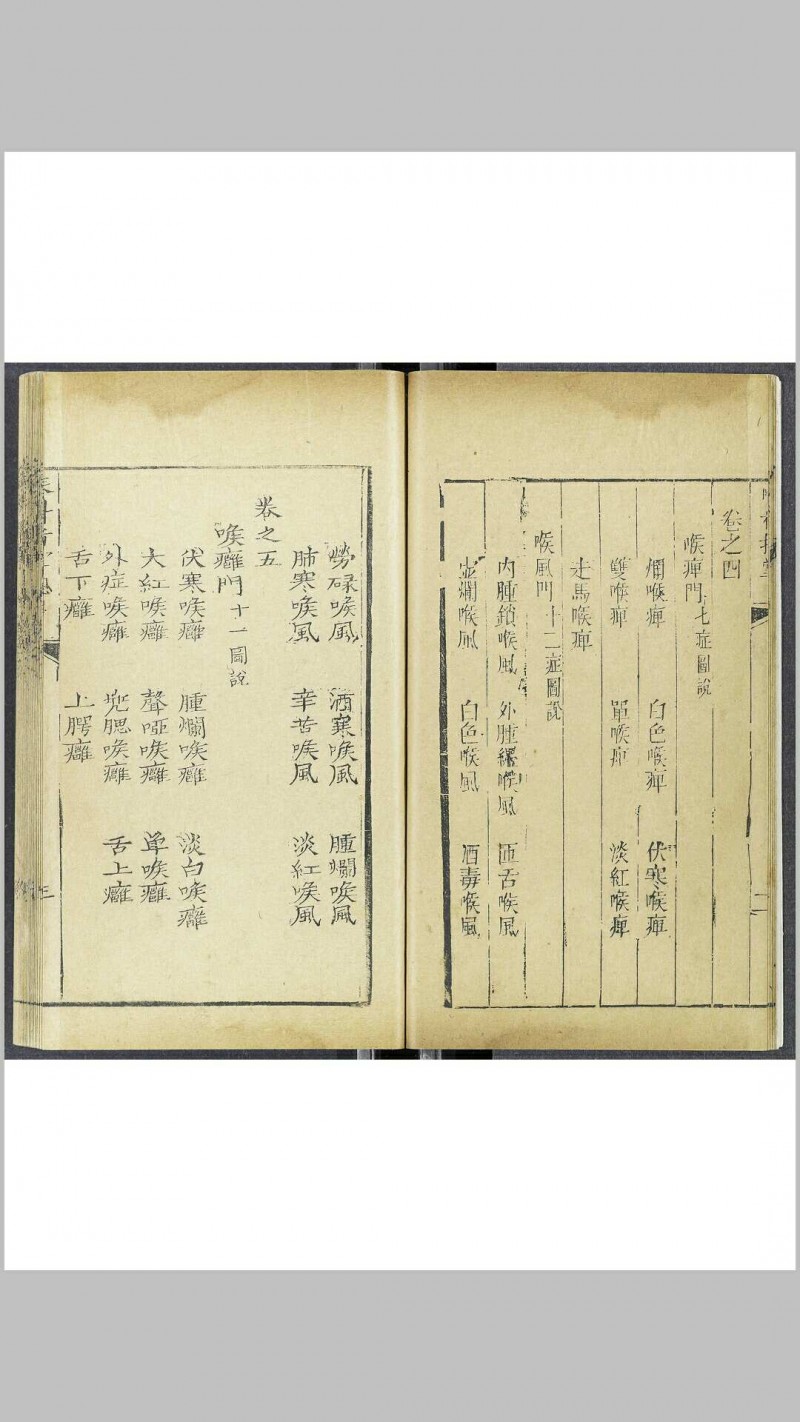 卷之四
喉痺門 七症圖說
爛喉痺 白色喉痺 伏寒喉痺
雙喉痺 單喉痺 淡紅喉痺
走馬喉痺
喉風門 十二症圖說
內腫鎖喉風 外腫纏喉風 匝舌喉風
虛爛喉風 白色喉風 酒毒喉風
勞碌喉風 酒寒喉風 腫爛喉風
肺寒喉風 辛苦喉風 淡紅喉風
卷之五
喉癰門 十一圖說
伏寒喉癰 腫爛喉癰 淡白喉癰
大紅喉癰 聲啞喉癰 單喉癰
外症喉癰 兜腮喉癰 舌上癰
舌下癰 上腭癰
三